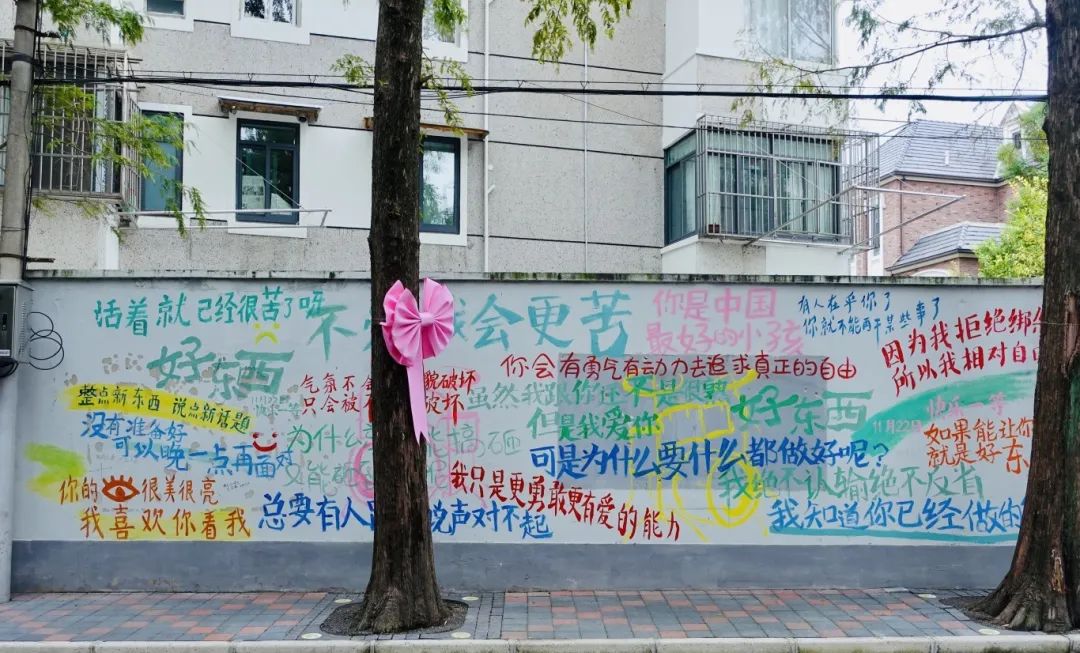 活着就已经很苦了呀
会更苦
你是中国
最好的小孩
有人在乎你了
你就不能再干某些事了
因为我拒绝绑
所以我相对自
好东西
你会有勇气有动力去追求真正的自由
气氛不会
貌破坏
只会被
破坏
整点新东西 说点新话题
11月22日
快乐一等
虽然我跟你还不是很熟
但是我爱你
好东西
快乐一等
11月22日
没有准备好
可以晚一点再面对
为什么
能搞砸
又能
可是为什么要什么都做好呢?
如果能让你
就是好东
你的
很美很亮
我喜欢你看我
我只是更勇敢更有爱的能力
我绝不认输绝不反省
总要有人
说声对不起
我知道你已经做的